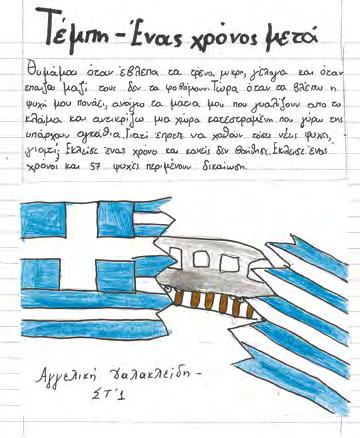 Τέμπη - Ένας χρόνος μετά
Θυμάμαι όταν έβλεπα τα τρένα μικρή, γέλαγα και όταν
έπαιζα μαζί τους δεν τα φοβόμουν. Τώρα όταν τα βλέπω η
ψυχή μου πονάει, ανοίγω τα μάτια μου που γυαλίζουν απο το
κλάμα και αντικρίζω μια χώρα κατεστραμένη που γύρω της
υπάρχουν αγκάθια. Γιατί έπρεπε να χαθούν τόσες νέες ψυχές,
γιατί; Έκλεισε ένας χρόνο και κανείς δεν βοήθησε. Έκλεισε ένας
χρόνος και 57 ψυχές περιμένουν δικαίωση.
Αγγελική Χαλακλείδη -
ΣΤ'1